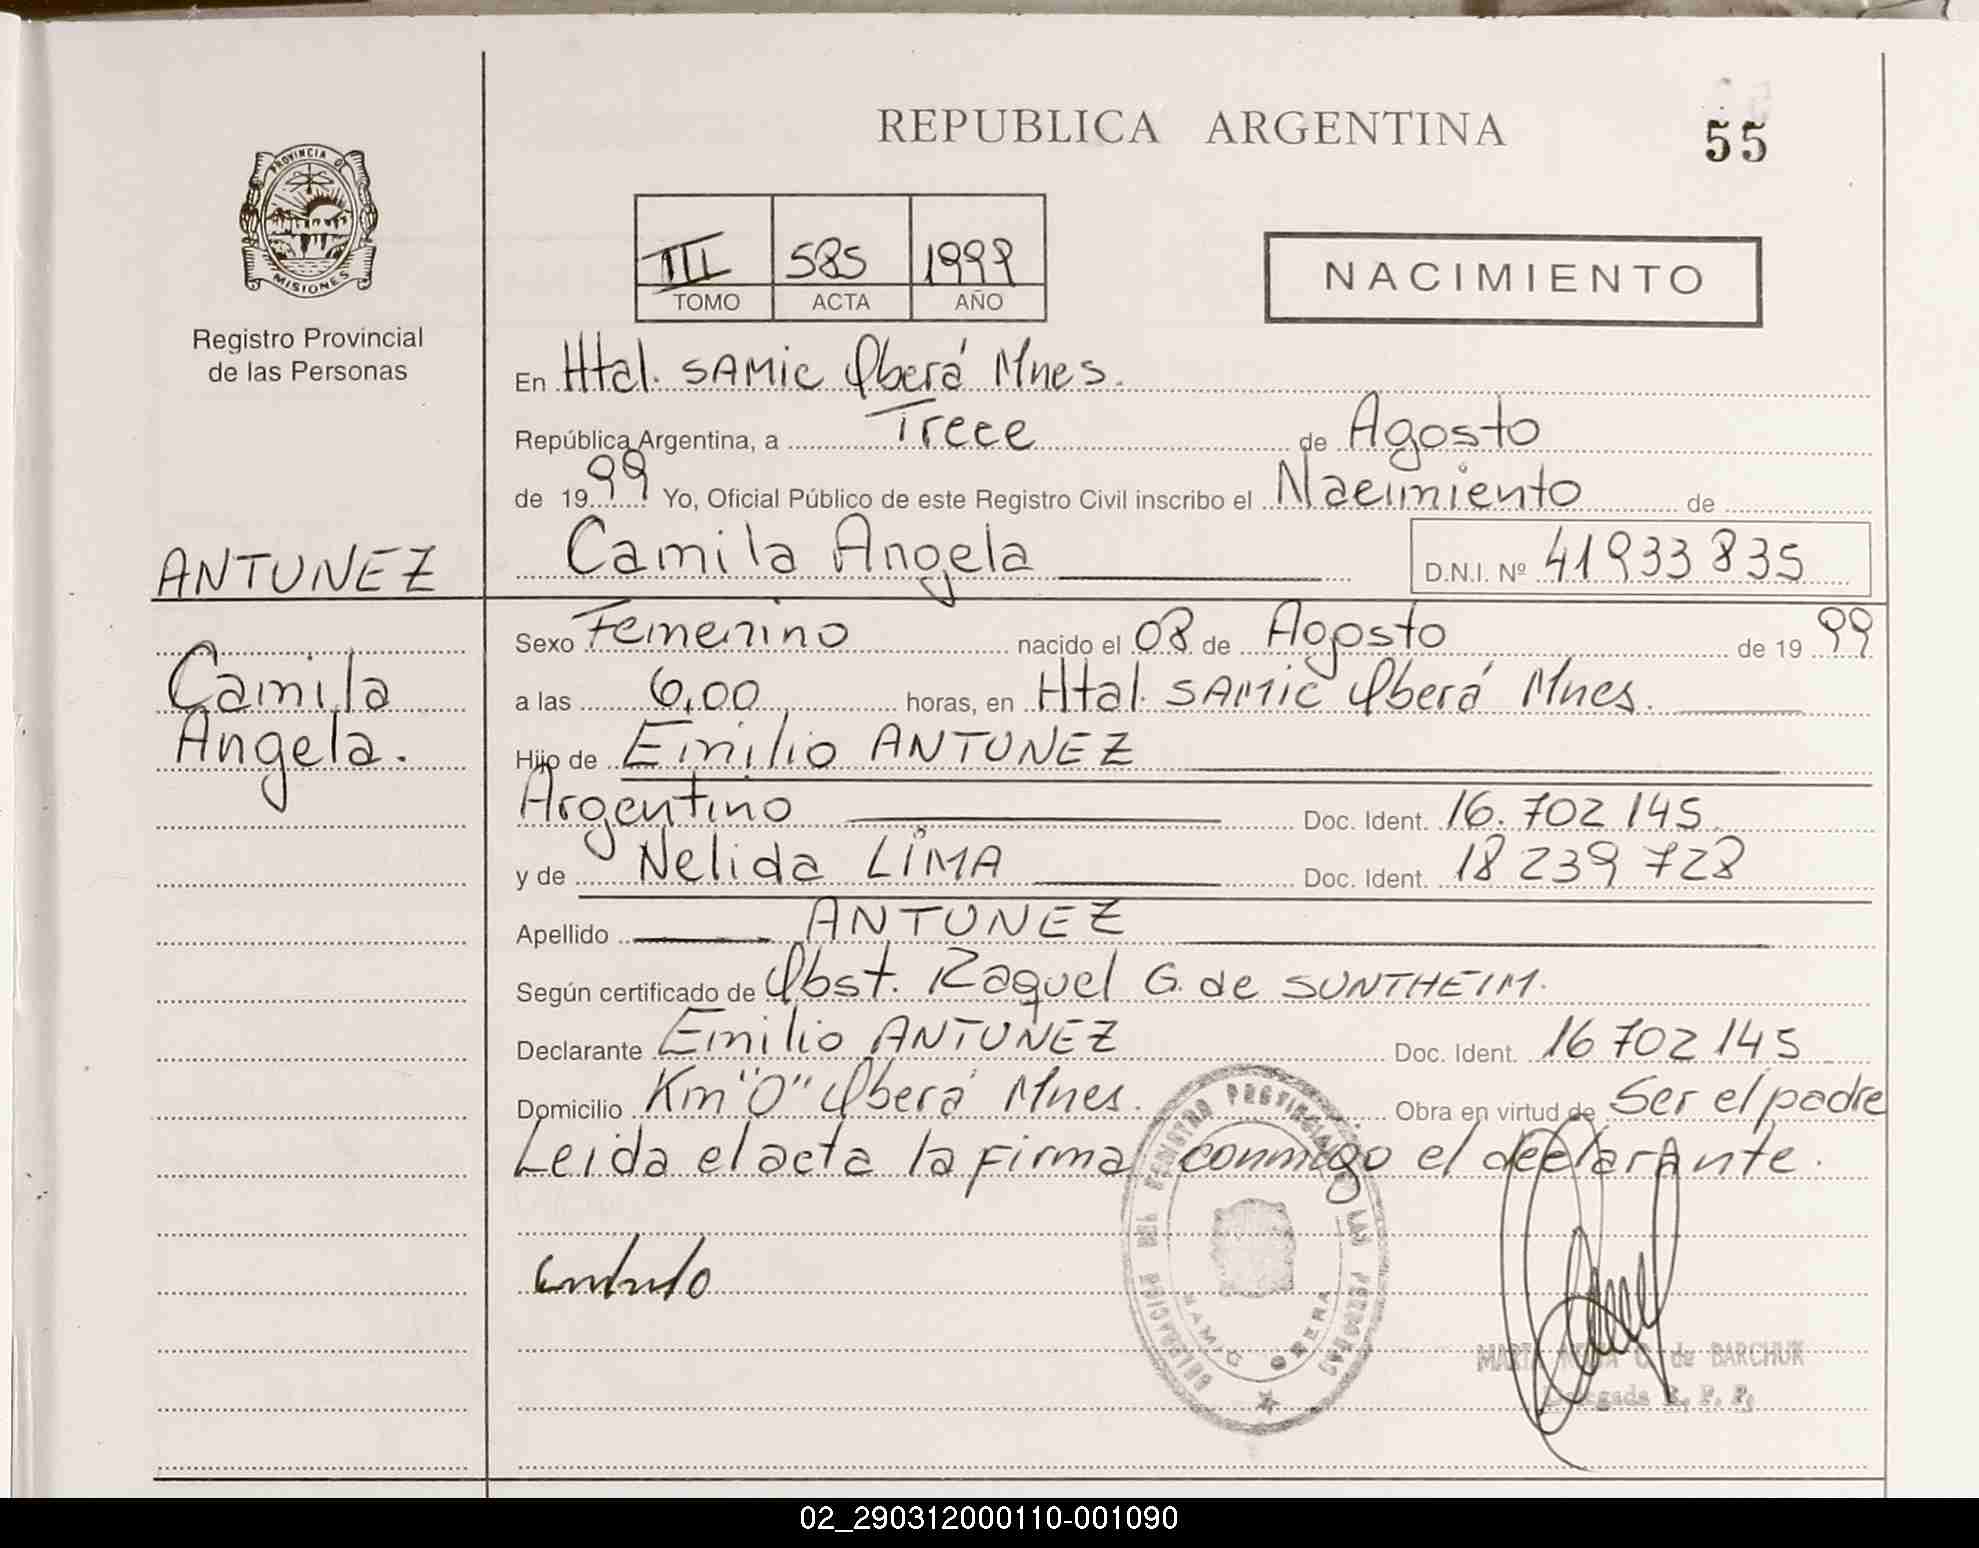 REPUBLICA ARGENTINA
55
PROVINCIA DE
MISIONES
Registro Provincial
de las Personas
III 585 1999
TOMO ACTA AÑO
NACIMIENTO
En Htal. SAMIC Oberá Mnes.
República Argentina, a Trece de Agosto
de 1999 Yo, Oficial Público de este Registro Civil inscribo el Nacimiento de
ANTUNEZ
Camila Angela D.N.I. Nº 41933835
Camila
Angela.
Sexo Femenino nacido el 08 de Agosto de 1999
a las 6,00 horas, en Htal. SAMIC Oberá Mnes.
Hijo de Emilio ANTUNEZ
Argentino Doc. Ident. 16.702 145
y de Nelida LIMA Doc. Ident. 18 239 728
Apellido ANTUNEZ
Según certificado de Obst. Raquel G. de SUNTHEIM.
Declarante Emilio ANTUNEZ Doc. Ident. 16 702 145
Domicilio Km "0" Oberá Mnes. Obra en virtud de Ser el padre
Leida el acta la firma conmigo el declarante.
REGISTRO PROVINCIAL DE LAS PERSONAS
SAMIC OBERA
de BARCHUK
R. P. P.
02_290312000110-001090